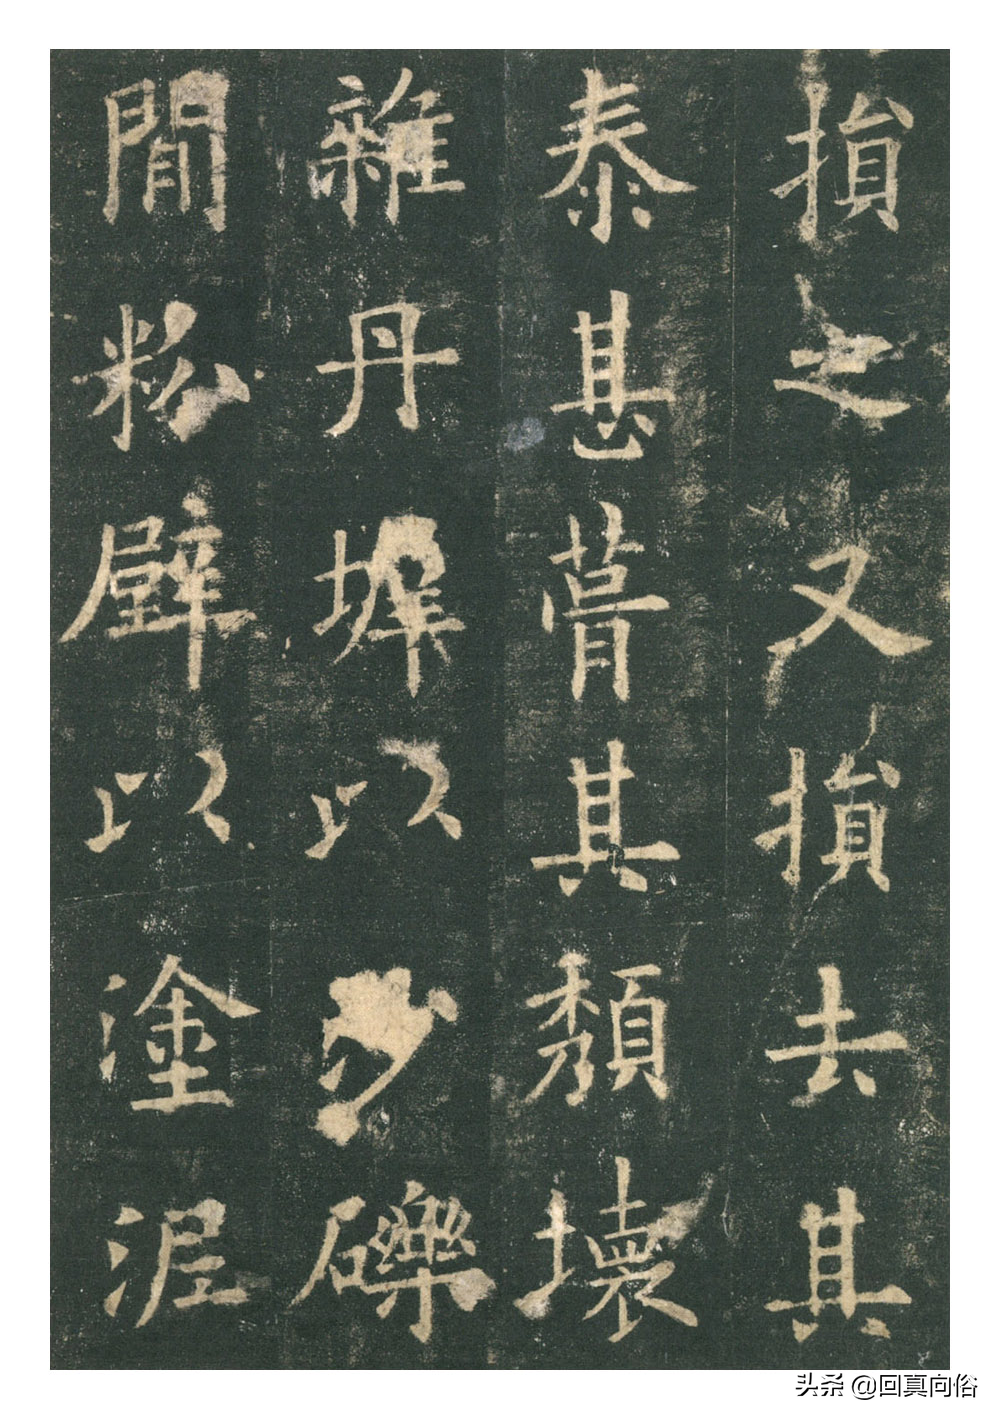 損之又損去其
泰甚葺其頹壞
雜丹墀以沙礫
間粉壁以塗泥
头条 @回真向俗